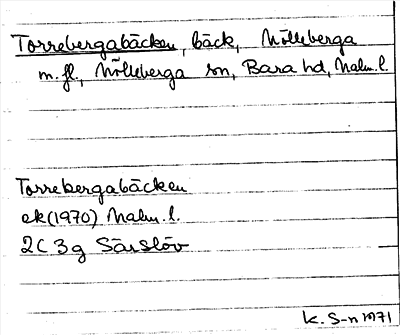 Torrebergabäcken, bäck, Mölleberga
m. fl., Mölleberga sn, Bara hd, Malm. l.
Torrebergabäcken
ek (1970) Malm. l.
2C 3g Särslöv
K. S-n 1971